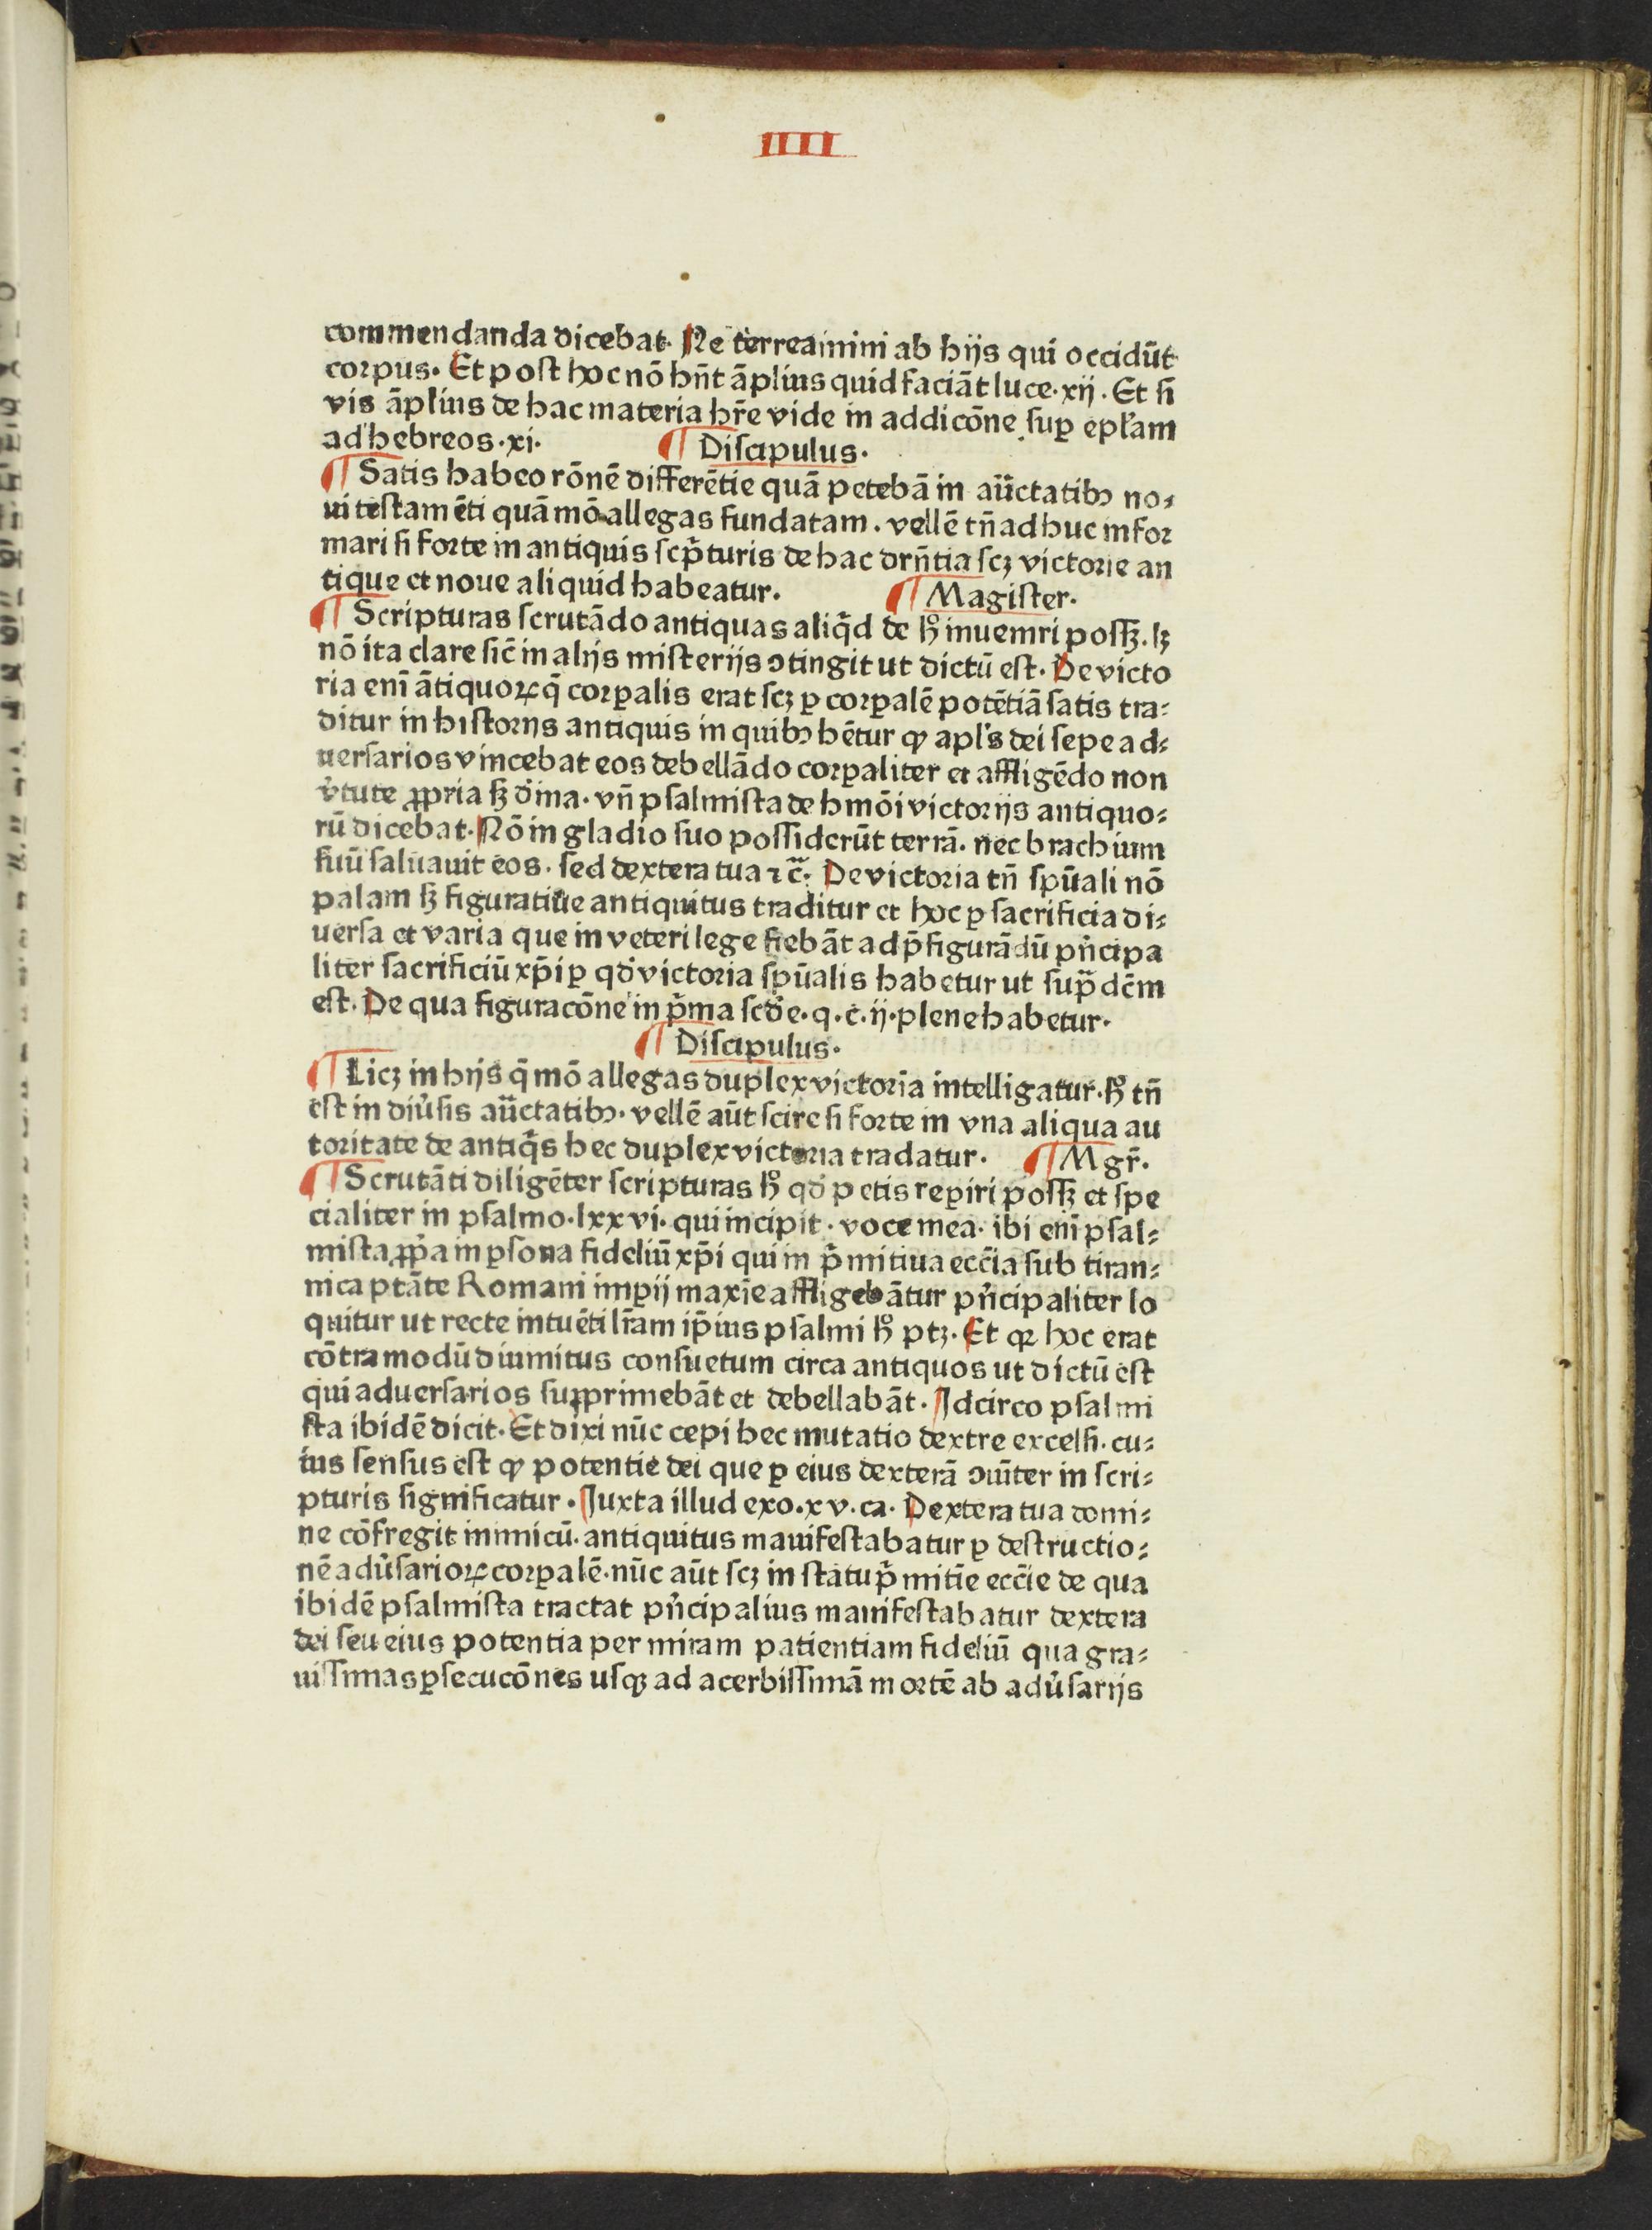 IIII
commendanda dicebat. Ne terreamini ab hijs qui occidūt
corpus. Et post hoc nō hn̄t āplius quid faciāt luce. xij. Et si
vis āplius de hac materia hr̄e vide in addicōne sup epl̄am
ad hebreos. xi. ¶ Discipulus.
¶ Satis habeo rōnē differētie quā petebā in auc̄tatibꝫ no⸗
ui testamēti quā mō allegas fundatam. vellē tn̄ adhuc infor
mari si forte in antiquis scp̄turis de hac drn̄tia scꝫ victorie an
tique et noue aliquid habeatur. ¶ Magister.
¶ Scripturas scrutādo antiquas aliq̄d de hͦ inueniri possꝫ. lꝫ
nō ita clare sic̄ in alijs misterijs ꝯtingit ut dictū est. De victo
ria eni̅ ātiquoꝝ q̄ corꝑalis erat scꝫ ꝑ corꝑalē potētiā satis tra⸗
ditur in historijs antiquis in quibꝫ hētur ꝙ apl̄s dei sepe ad⸗
uersarios vincebat eos debellādo corꝑaliter et affligēdo non
v̓tute ꝓpria sꝫ diͥna. vn̄ psalmista de hmōi victorijs antiquo⸗
rū dicebat. Nō in gladio suo possiderūt terrā. nec brachium
suū saluauit eos. sed dextera tua ⁊ c̄. De victoria tn̄ spūali nō
palam sꝫ figuratiue antiquitus traditur et hoc ꝑ sacrificia di⸗
uersa et varia que in veteri lege fiebāt ad p̄figurādū pn̓cipa
liter sacrificiū xp̄i ꝑ qd̓ victoria spūalis habetur ut sup̄ dc̄m
est. De qua figuracōne in p̓ma scd̓e. q. c. ij. plene habetur.
¶ Discipulus.
¶ Licꝫ in hijs q̄ mō allegas duplex victoria intelligatur. hͦ tn̄
est in diu̓sis auc̄tatibꝫ. vellē aūt scire si forte in vna aliqua au
toritate de antiq̓s hec duplex victoria tradatur. ¶ Mgr̄.
¶ Scrutāti diligēter scripturas hͦ qd̓ petis reꝑiri possꝫ et spe
cialiter in psalmo. lxxvi. qui incipit. voce mea. ibi eni̅ psal⸗
mista ꝓp̓a in ꝑsona fideliū xp̄i qui in p̓mitiua ecc̄ia sub tiran⸗
nica ptāte Romani imꝑij maxīe affligebātur pn̓cipaliter lo
quitur ut recte intuēti lr̄am ip̄ius psalmi hͦ ptꝫ. Et qꝛ hoc erat
cōtra modū diuinitus consuetum circa antiquos ut dictū est
qui aduersarios supprimebāt et debellabāt. Idcirco psalmi
sta ibidē dicit. Et dixi nūc cepi hec mutatio dextre excelsi. cu⸗
ius sensus est ꝙ potentie dei que ꝑ eius dexterā ꝯiūter in scri⸗
pturis significatur. Iuxta illud exo. xv. ca. Dextera tua domi⸗
ne cōfregit inimicū. antiquitus manifestabatur ꝑ destructio⸗
nē adu̓sarioꝝ corꝑalē. nūc aūt scꝫ in statu p̓mitīe ecc̄ie de qua
ibidē psalmista tractat pn̓cipalius manifestabatur dextera
dei seu eius potentia per miram patientiam fideliū qua gra⸗
uissimas ꝑsecucōnes usqꝫ ad acerbissimā mortē ab adu̓sarijs